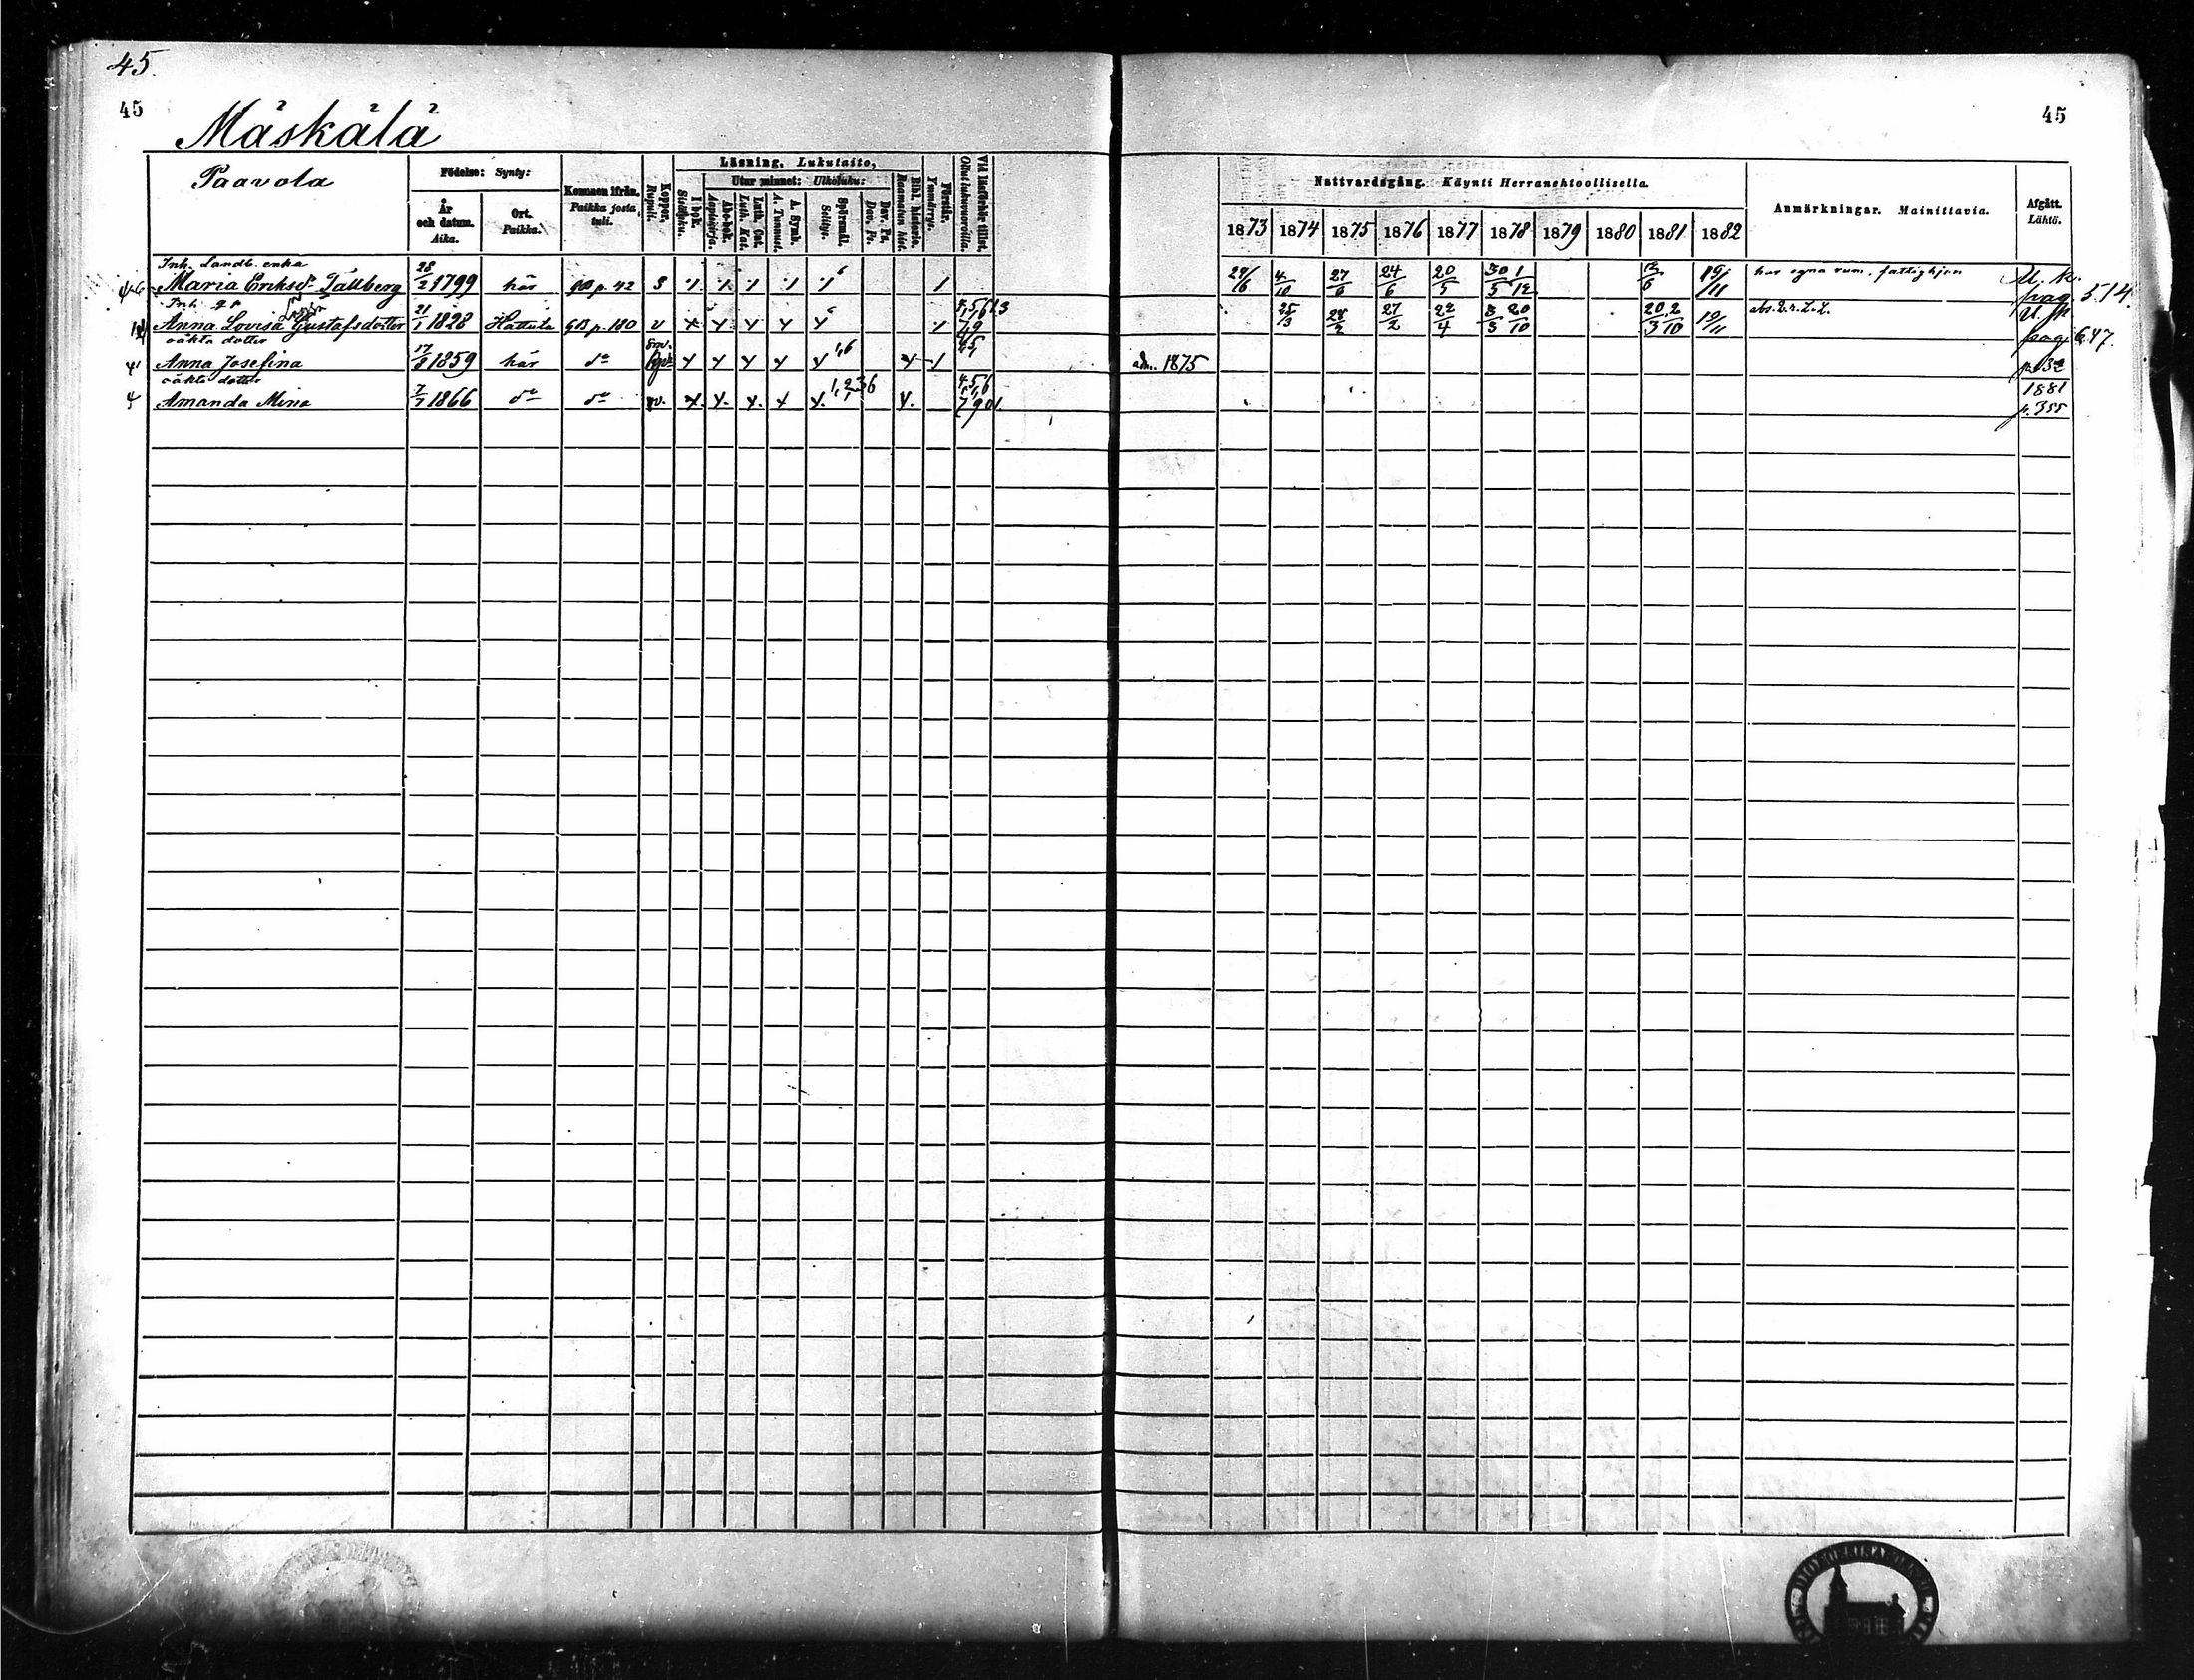 45.
45
45
Mäskälä
Paavola
Födelse: Synty:
År och datum. Aika.
Ort. Paikka.
Kommen ifrån. Paikka josta tuli.
Koppor. Rupuli.
Läsning, Lukutaito,
I bok. Sisäluku.
Utur minnet: Ulkoluku:
Abc-bok. Aapiskirja.
Luth. Cat. Luth. Kat.
A. Symb. A. Tunnust.
Spörsmål. Selitys.
Dav. Ps. Dav. Ps.
Bibl. historia. Raamatun hist.
Förstår. Ymmärrys.
Vid läsförhör tillst. Ollut lukuvuoroilla.
Nattvardsgång. Käynti Herranehtoollisella.
1873 1874 1875 1876 1877 1878 1879 1880 1881 1882
Anmärkningar. Mainittavia.
Afgått. Lähtö.
Inh. Landb. enka
Maria Eriksd:r Tallberg 28/2 1799 här GB p. 42 S 6 1 29/6 4/10 27/6 24/6 20/5 30/5 1/12 19/11 har egna rum. fattighjon pag 514.
Inh. q:s
Anna Lovisa Gustafsdotter 21/1 1828 Hattula GB p. 180 v 25/3 27/2 22/4 3/3 20/10 20/3 2/10 19/11 pag 647.
oäkta dotter
Anna Josefina 17/8 1859 här d:o 1,6 adm. 1875
oäkta dotter
Amanda Mina 7/7 1866 d:o d:o v. 1,2,36 456 1881 p. 355